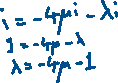 i = -4μi - λi
1 = -4μ - λ
λ = -4μ - 1